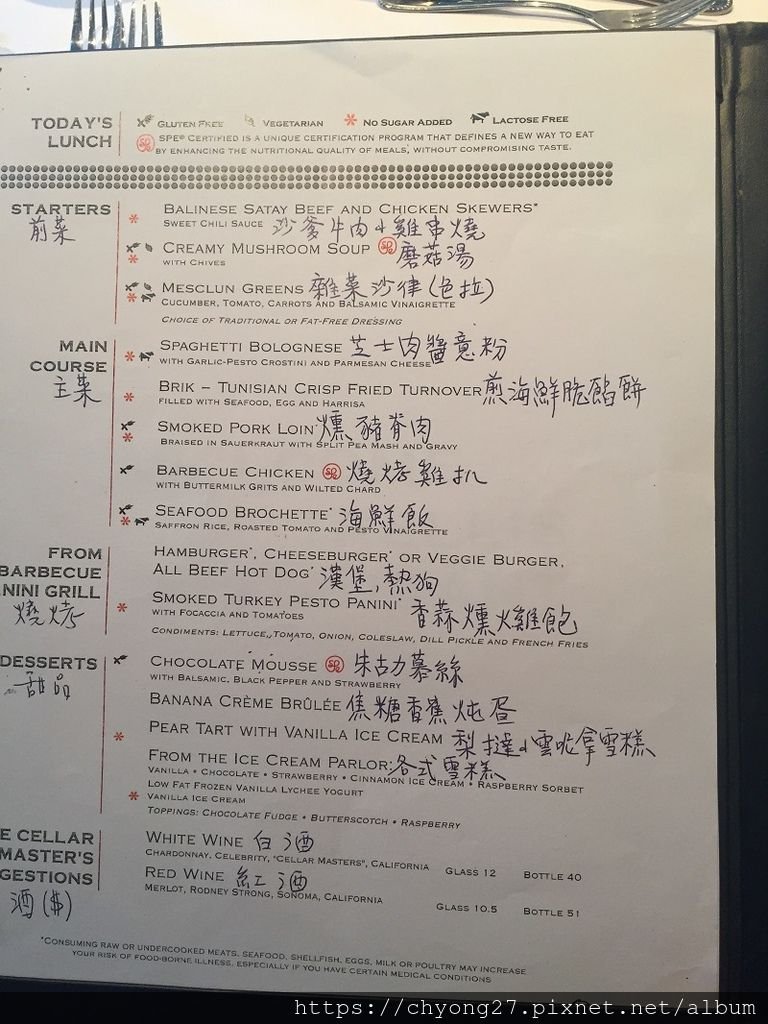 TODAY'S LUNCH
Gluten Free Vegetarian No Sugar Added Lactose Free
SPE® Certified is a unique certification program that defines a new way to eat
by enhancing the nutritional quality of meals, without compromising taste.
STARTERS
前菜
Balinese Satay Beef and Chicken Skewers*
Sweet Chili Sauce 沙爹牛肉&雞串燒
Creamy Mushroom Soup SPE 磨菇湯
with Chives
Mesclun Greens 雜菜沙律(色拉)
Cucumber, Tomato, Carrots and Balsamic Vinaigrette
Choice of Traditional or Fat-Free Dressing
MAIN COURSE
主菜
Spaghetti Bolognese 芝士肉醬意粉
with Garlic-Pesto Crostini and Parmesan Cheese
Brik – Tunisian Crisp Fried Turnover 煎海鮮脆餡餅
filled with Seafood, Egg and Harissa
Smoked Pork Loin* 燻豬脊肉
Braised in Sauerkraut with Split Pea Mash and Gravy
Barbecue Chicken SPE 燒烤雞扒
with Buttermilk Grits and Wilted Chard
Seafood Brochette* 海鮮飯
Saffron Rice, Roasted Tomato and Pesto Vinaigrette
FROM
BARBECUE
NINI GRILL
燒烤
Hamburger*, Cheeseburger* or Veggie Burger,
All Beef Hot Dog* 漢堡,熱狗
Smoked Turkey Pesto Panini* 香蒜燻火雞飽
with Focaccia and Tomatoes
Condiments: Lettuce, Tomato, Onion, Coleslaw, Dill Pickle and French Fries
DESSERTS
甜品
Chocolate Mousse SPE 朱古力慕絲
with Balsamic, Black Pepper and Strawberry
Banana Crème Brûlée 焦糖香蕉炖蛋
Pear Tart with Vanilla Ice Cream 梨撻&雲呢拿雪糕
From the Ice Cream Parlor: 各式雪糕
Vanilla • Chocolate • Strawberry • Cinnamon Ice Cream • Raspberry Sorbet
Low Fat Frozen Vanilla Lychee Yogurt
Vanilla Ice Cream
Toppings: Chocolate Fudge • Butterscotch • Raspberry
E CELLAR
MASTER'S
GESTIONS
酒($)
White Wine 白酒
Chardonnay, Celebrity, "Cellar Masters", California Glass 12 Bottle 40
Red Wine 紅酒
Merlot, Rodney Strong, Sonoma, California Glass 10.5 Bottle 51
*Consuming raw or undercooked meats, seafood, shellfish, eggs, milk or poultry may increase
your risk of food-borne illness, especially if you have certain medical conditions
https://chyong27.pixnet.net/album